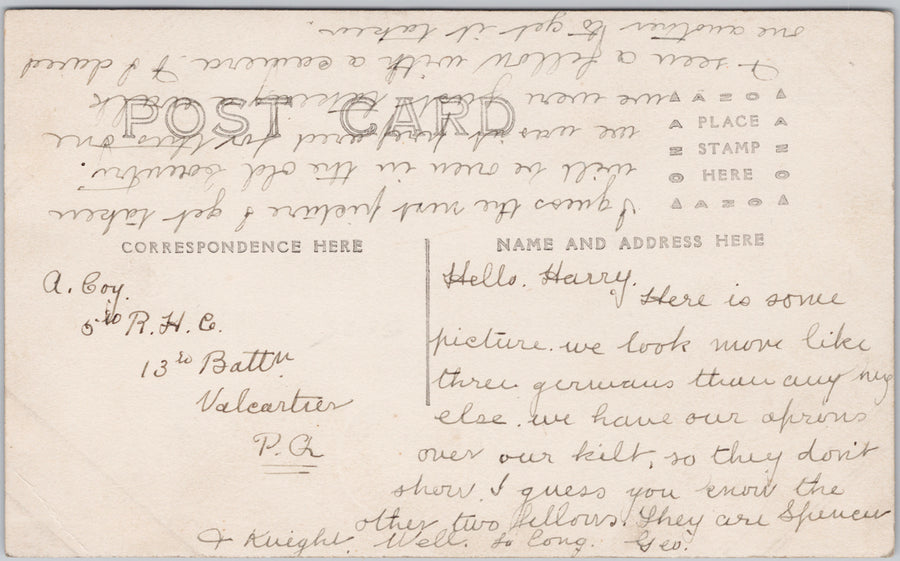 POST CARD
CORRESPONDENCE HERE
NAME AND ADDRESS HERE
AZO
PLACE
STAMP
HERE
AZO
A. Coy.
5th R. H. C.
13th Battn
Valcartier
P. Q.
Hello. Harry.
Here is some
picture. we look more like
three germans than any
else. we have our aprons
over our kilt, so they don't
show. I guess you know the
other two fellows. They are Spencer
& Knight. Well. So long. Geo.
I guess the next picture I get taken
will be over in the old country.
we was not prepared for this one
we were just taking a walk
I seen a fellow with a camera & I dared
one another to get it taken.